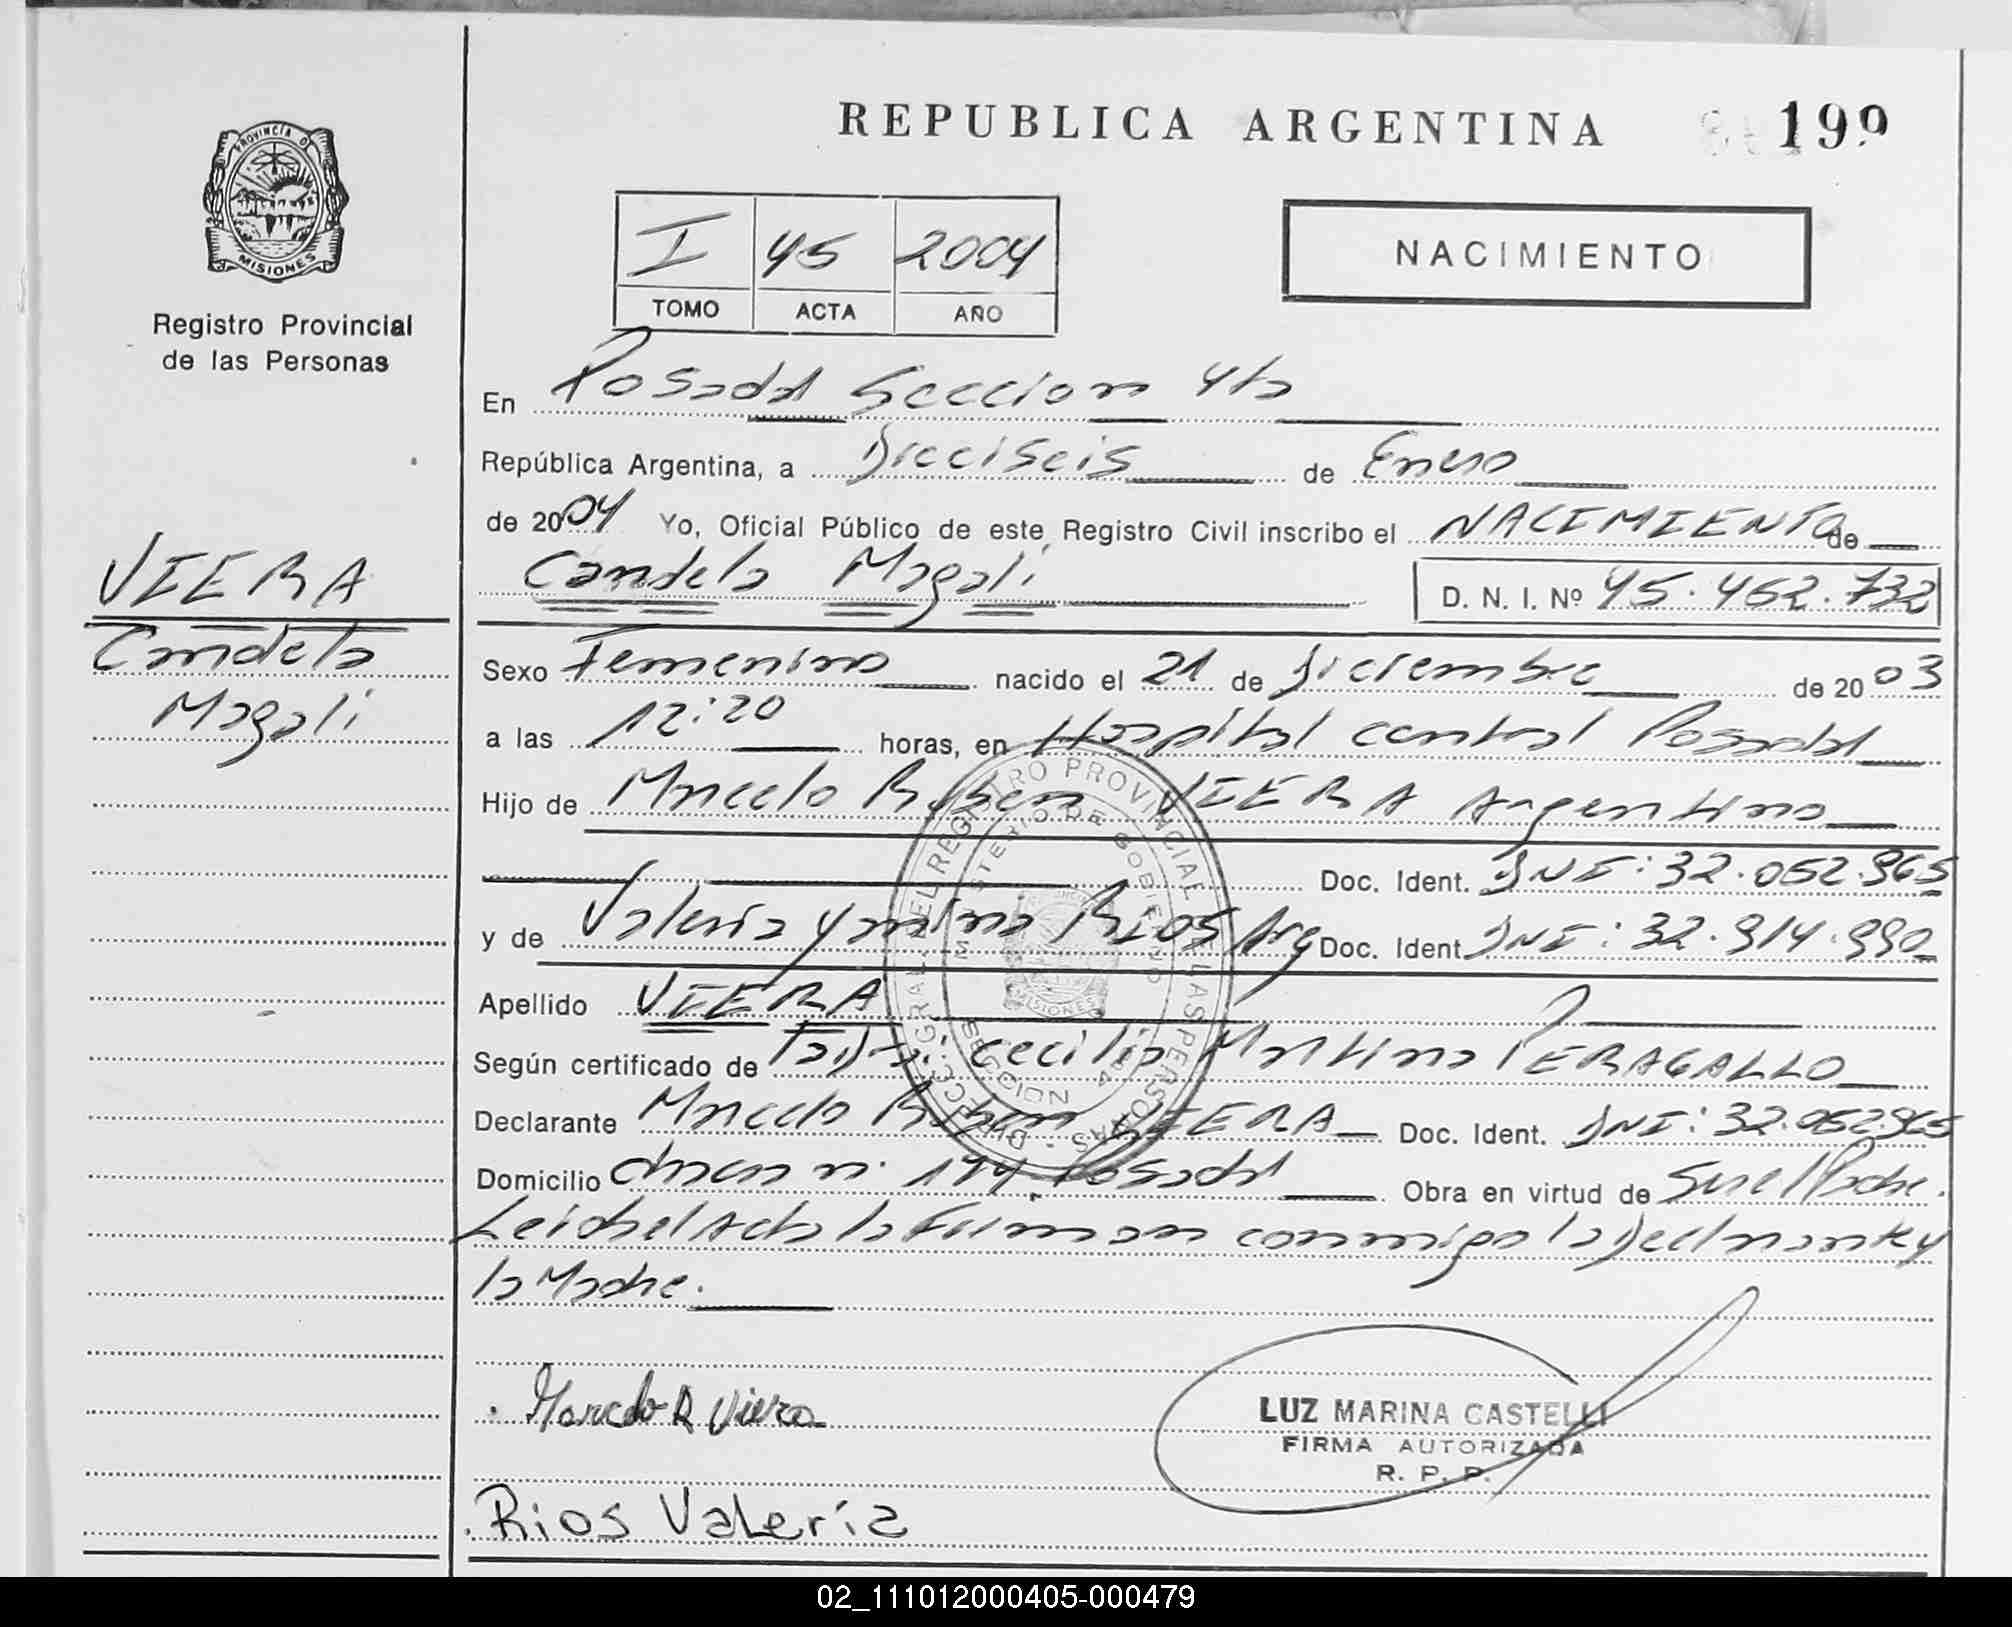 REPUBLICA ARGENTINA 199
PROVINCIA D
MISIONES
Registro Provincial
de las Personas
I 45 2004
TOMO ACTA AÑO
NACIMIENTO
En Posadas Seccion 4ta
República Argentina, a Dieciseis de Enero
de 2004 Yo, Oficial Público de este Registro Civil inscribo el NACIMIENTO de
Candela Magali D. N. I. Nº 45.462.732
VIERA
Candela
Magali
Sexo Femenino nacido el 21 de Diciembre de 2003
a las 12:20 horas, en Hospital central Posadas
Hijo de Marcelo Ruben VIERA Argentino
Doc. Ident. DNI: 32.052.965
y de Valeria Yanina RIOS Arg Doc. Ident. DNI: 32.914.990
Apellido VIERA
Según certificado de Cecilia Martina PERAGALLO
Declarante Marcelo Ruben VIERA Doc. Ident. DNI: 32.052.965
Domicilio n. 194 Posadas Obra en virtud de Ser el Padre.
Leida el Acta la Firman conmigo la Declarante y
la Madre.
DIRECC. GRAL. DEL REGISTRO PROVINCIAL DE LAS PERSONAS
MINISTERIO DE GOBIERNO
MISIONES
SECCION 4ta
Marcelo R Viera
LUZ MARINA CASTELLI
FIRMA AUTORIZADA
R. P. P.
Rios Valeria
02_111012000405-000479